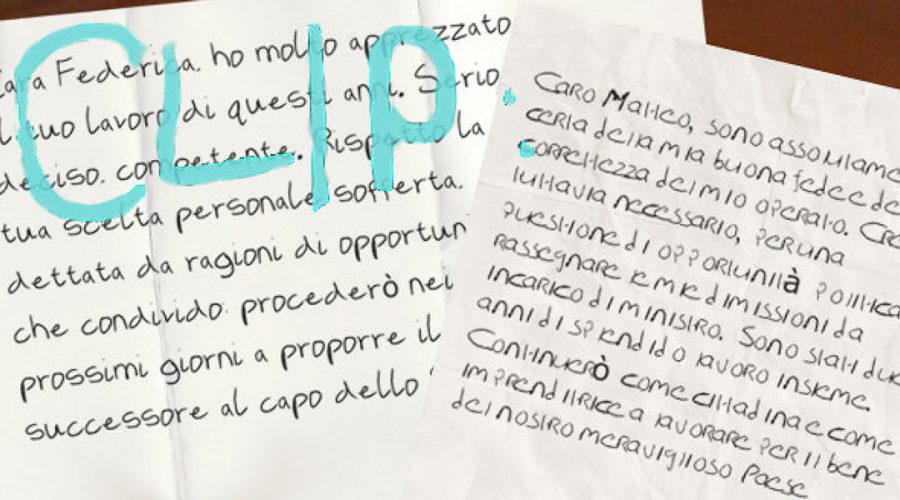 CLIP
Cara Federica. ho molto apprezzato
il tuo lavoro di questi anni. Serio
deciso. competente. Rispetto la
tua scelta personale, sofferta.
dettata da ragioni di opportun
che condivido. procederò nei
prossimi giorni a proporre il
successore al capo dello
Caro Matteo, sono assolutame
certa della mia buona fede e de
correttezza del mio operato. Cre
tuttavia necessario, per una
questione di opportunità politica
rassegnare le mie dimissioni da
incarico di ministro. Sono stati due
anni di splendido lavoro insieme.
Continuerò come cittadina e come
imprenditrice a lavorare per il bene
del nostro meraviglioso Paese